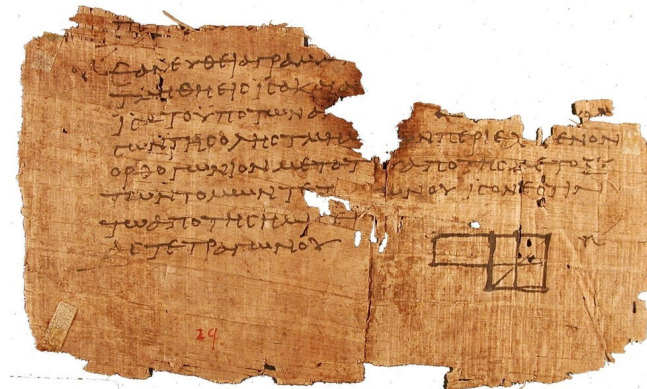 ΕΑΝΕΥΘΕΙΑΓΡΑΜΜ
ΤΜΗΘΗΕΙϹΙϹΑΚΑΙ
ΙϹΑΤΟΥΠΟΤΩΝΑ
ϹΩΝΤΗϹΟΛΗϹΤΜΗ ΩΝΠΕΡΙΕΧΟΜΕΝΟΝ
ΟΡΘΟΓΩΝΙΟΝΜΕΤΑΤΟΥ ΑΠΟΤΗϹΜΕΤΟΞΥ
ΤΩΝΤΟΜΩΝΤΕΤ ΩΝΟΥΙϹΟΝΕϹΤΙΝ
ΤΩΑΠΟΤΗϹΗΜΙϹΕΙ
ΑϹΤΕΤΡΑΓΩΝΟΥ
29